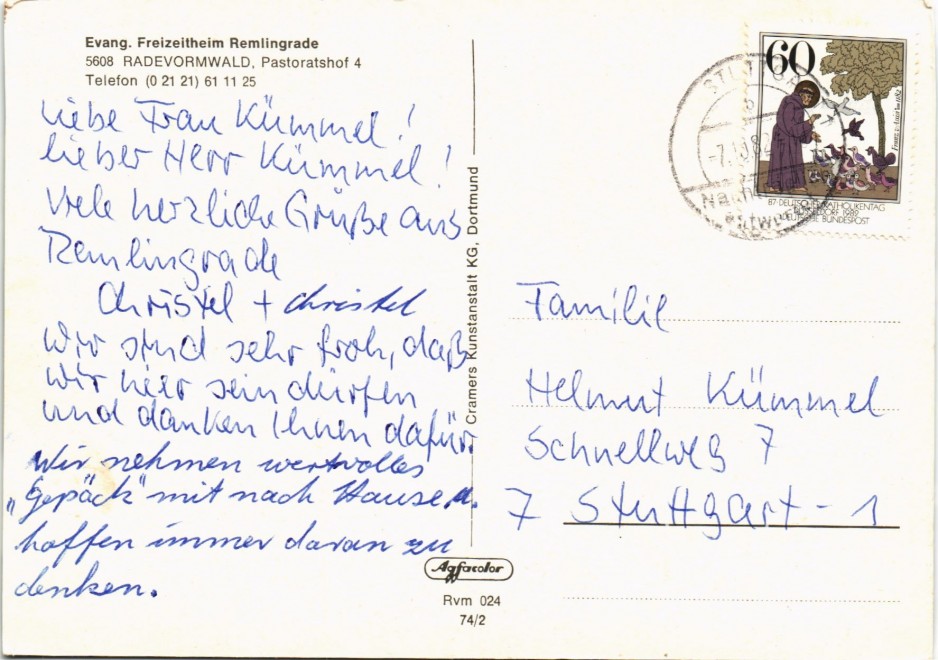 Evang. Freizeitheim Remlingrade
5608 RADEVORMWALD, Pastoratshof 4
Telefon (0 21 21) 61 11 25
Liebe Frau Kümmel!
lieber Herr Kümmel!
Viele herzliche Grüße aus
Remlingrade
Christel + Christel
Wir sind sehr froh, daß
wir hier sein dürfen
und danken Ihnen dafür.
Wir nehmen wertvolles
„Gepäck" mit nach Hause u.
hoffen immer daran zu
denken.
Cramers Kunstanstalt KG, Dortmund
Agfacolor
Rvm 024
74/2
60
87. DEUTSCHER KATHOLIKENTAG
DÜSSELDORF 1982
DEUTSCHE BUNDESPOST
Familie
Helmut Kümmel
Schnellweg 7
7 Stuttgart - 1